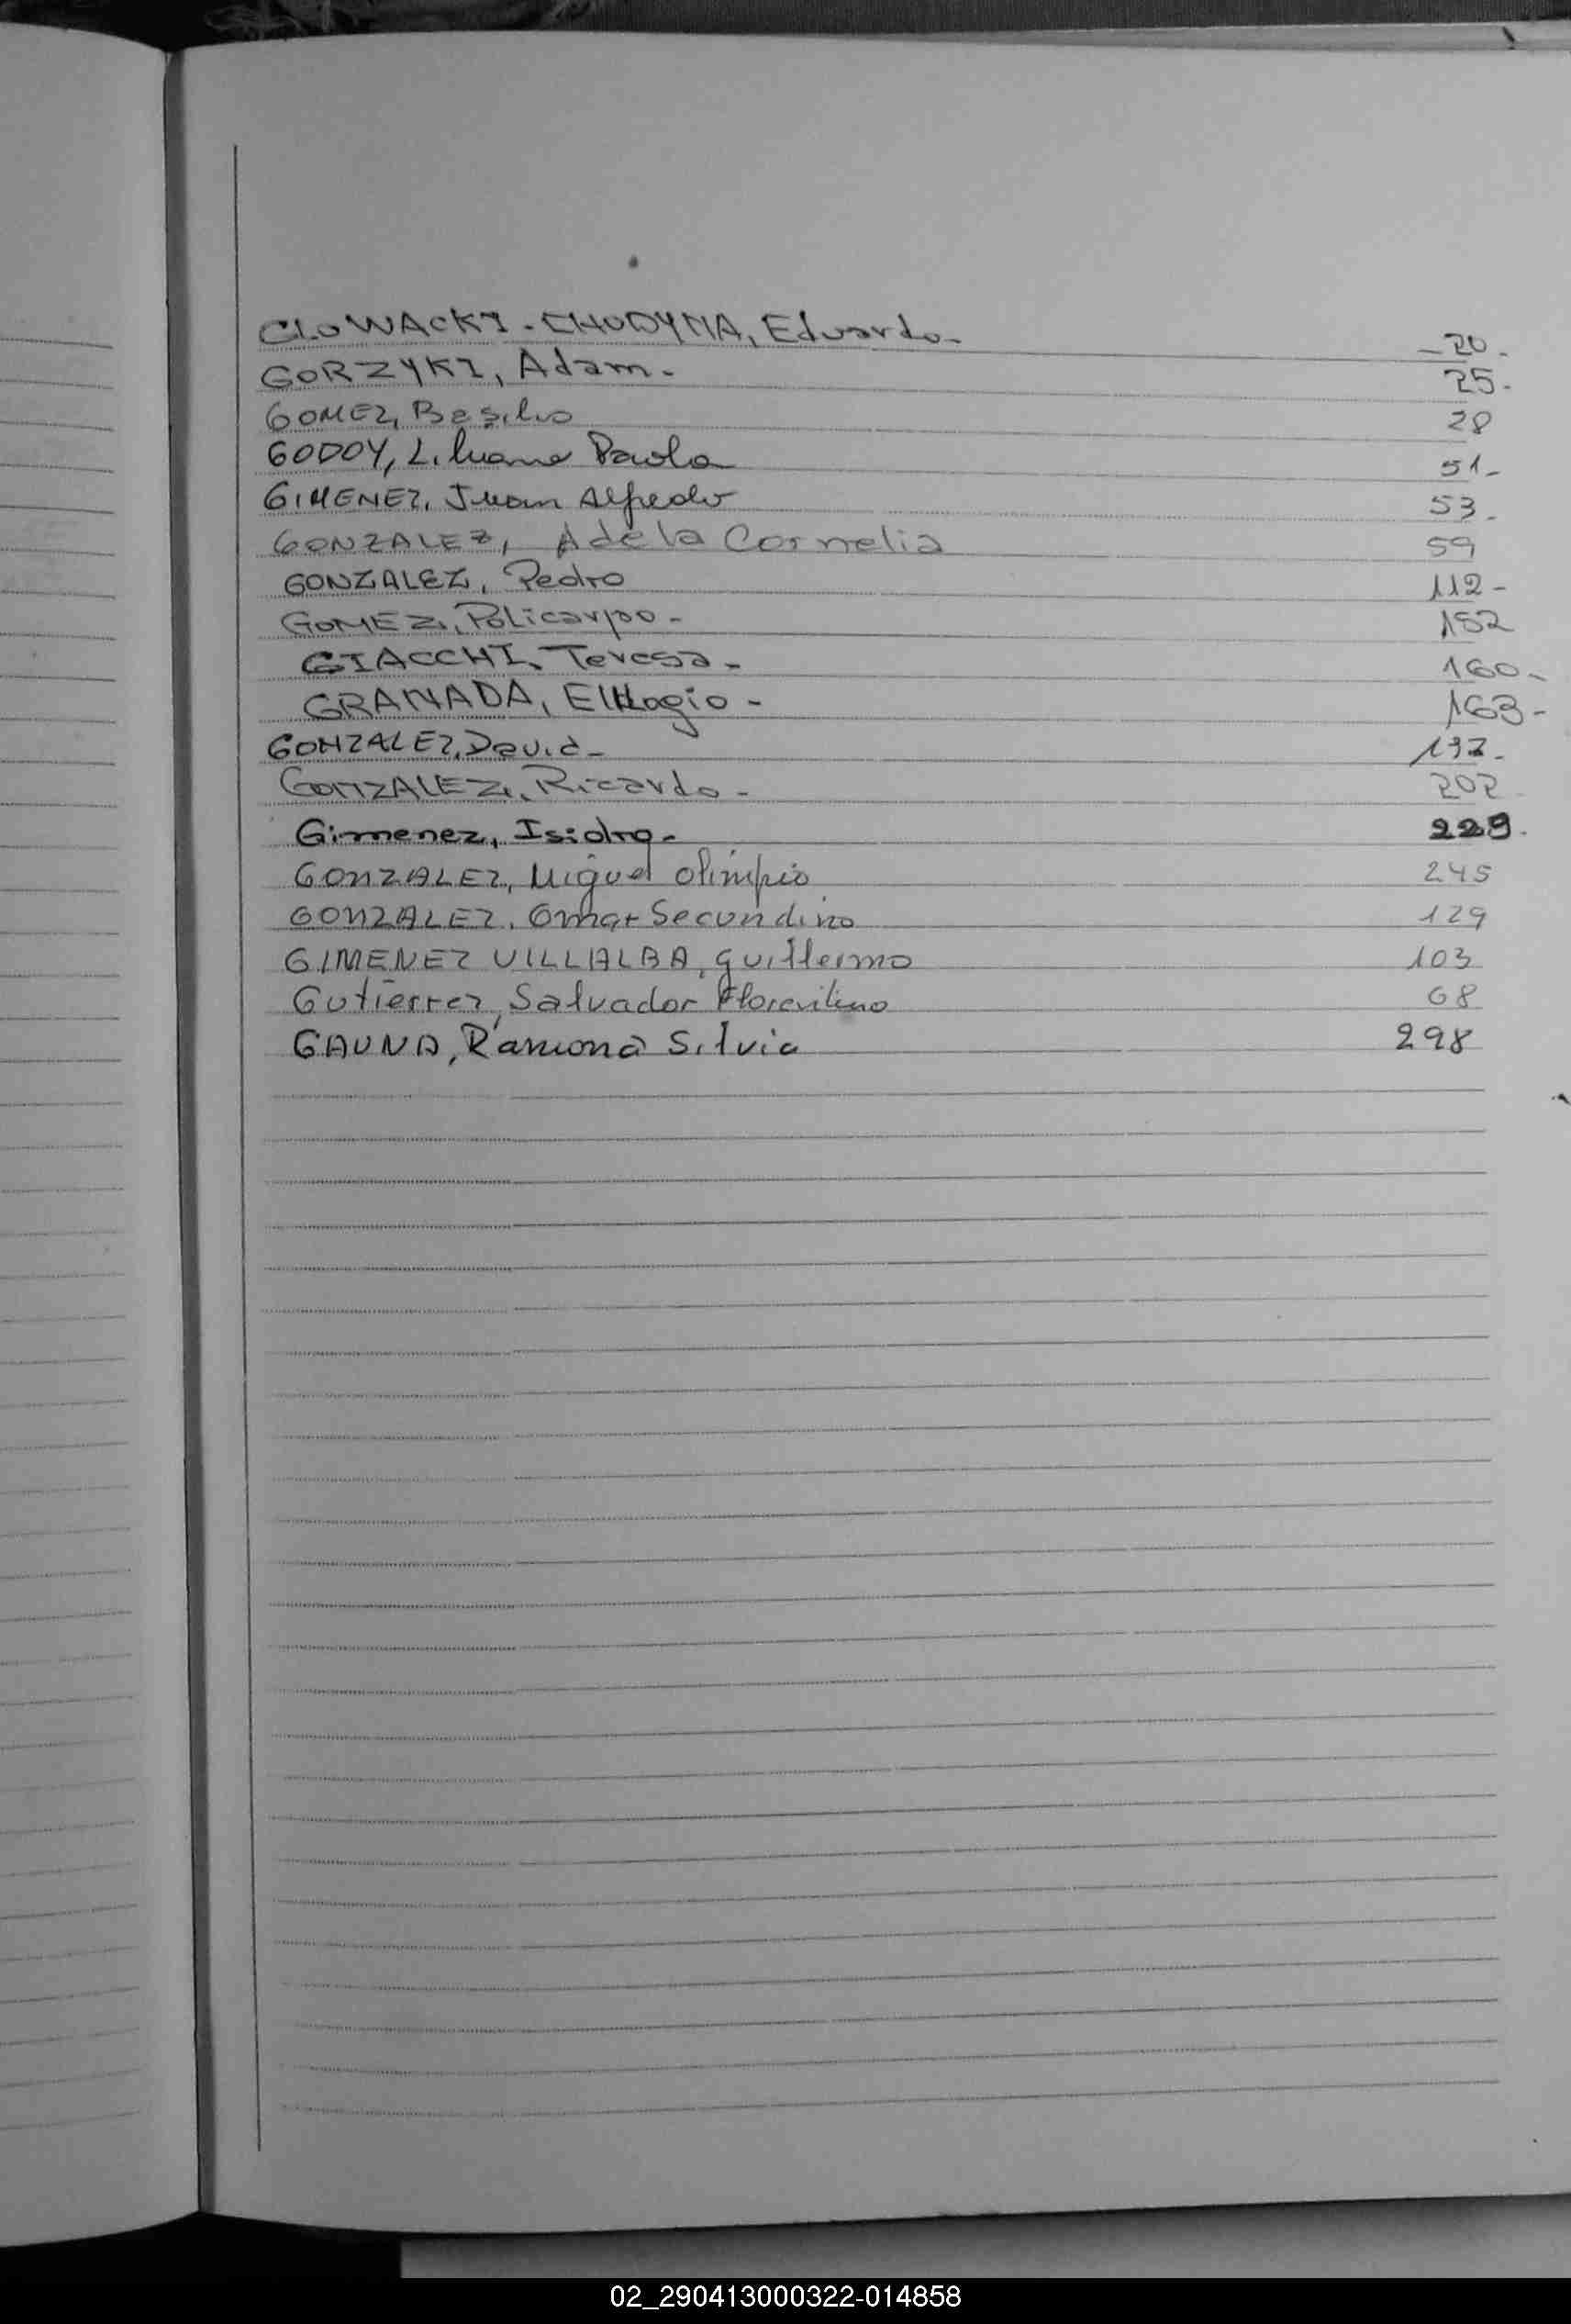 GLOWACKI - CHODYMA, Eduardo - 20 -
GORZYKI, Adam - 25 -
GOMEZ, Basilio 28
GODOY, Liliana Paola 51 -
GIMENEZ, Juan Alfredo 53 -
GONZALEZ, Adela Cornelia 59
GONZALEZ, Pedro 112 -
GOMEZ, Policarpo - 152
GIACCHI, Teresa - 160 -
GRANADA, Elogio - 163 -
GONZALEZ, David - 197 -
GONZALEZ, Ricardo - 202
Gimenez, Isidro - 229 -
GONZALEZ, Miguel Olimpio 245
GONZALEZ, Omar Secundino 129
GIMENEZ VILLALBA, Guillermo 103
Gutierrez, Salvador 68
GAUNA, Ramona Silvia 298
02_290413000322-014858